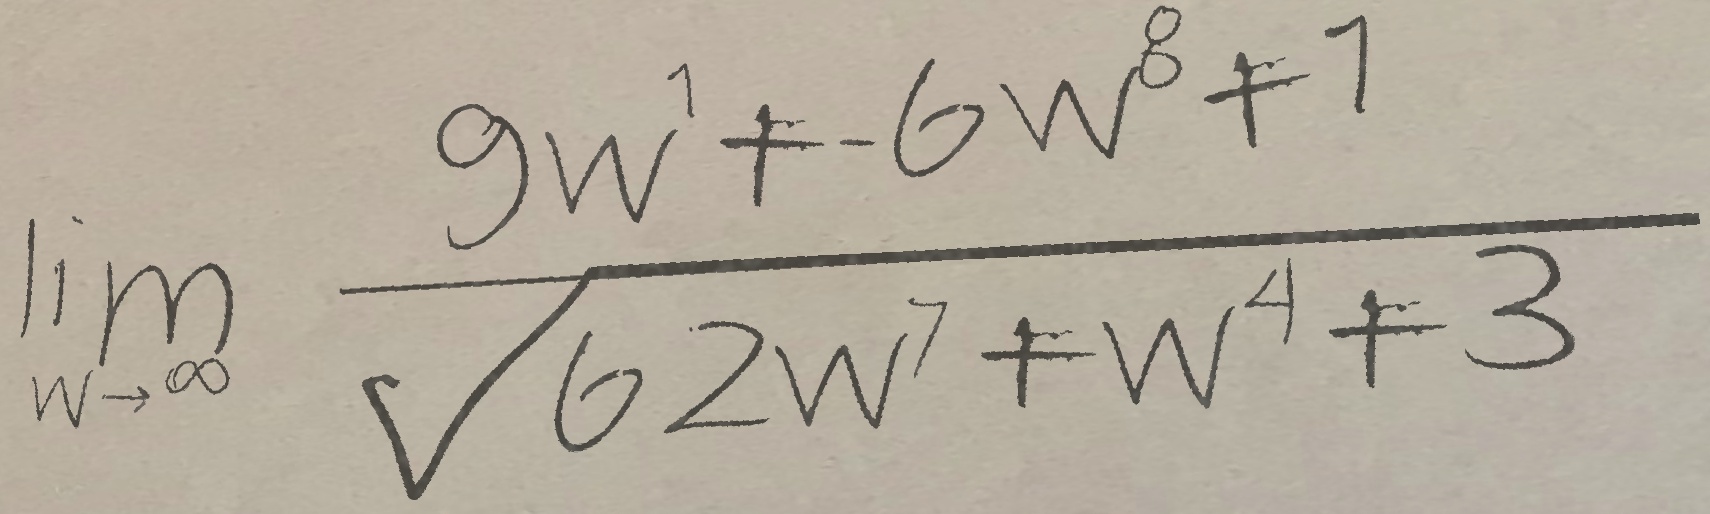 \lim_{w \to \infty} \frac{9w^1 + -6w^8 + 1}{\sqrt{62w^7 + w^4 + 3}}